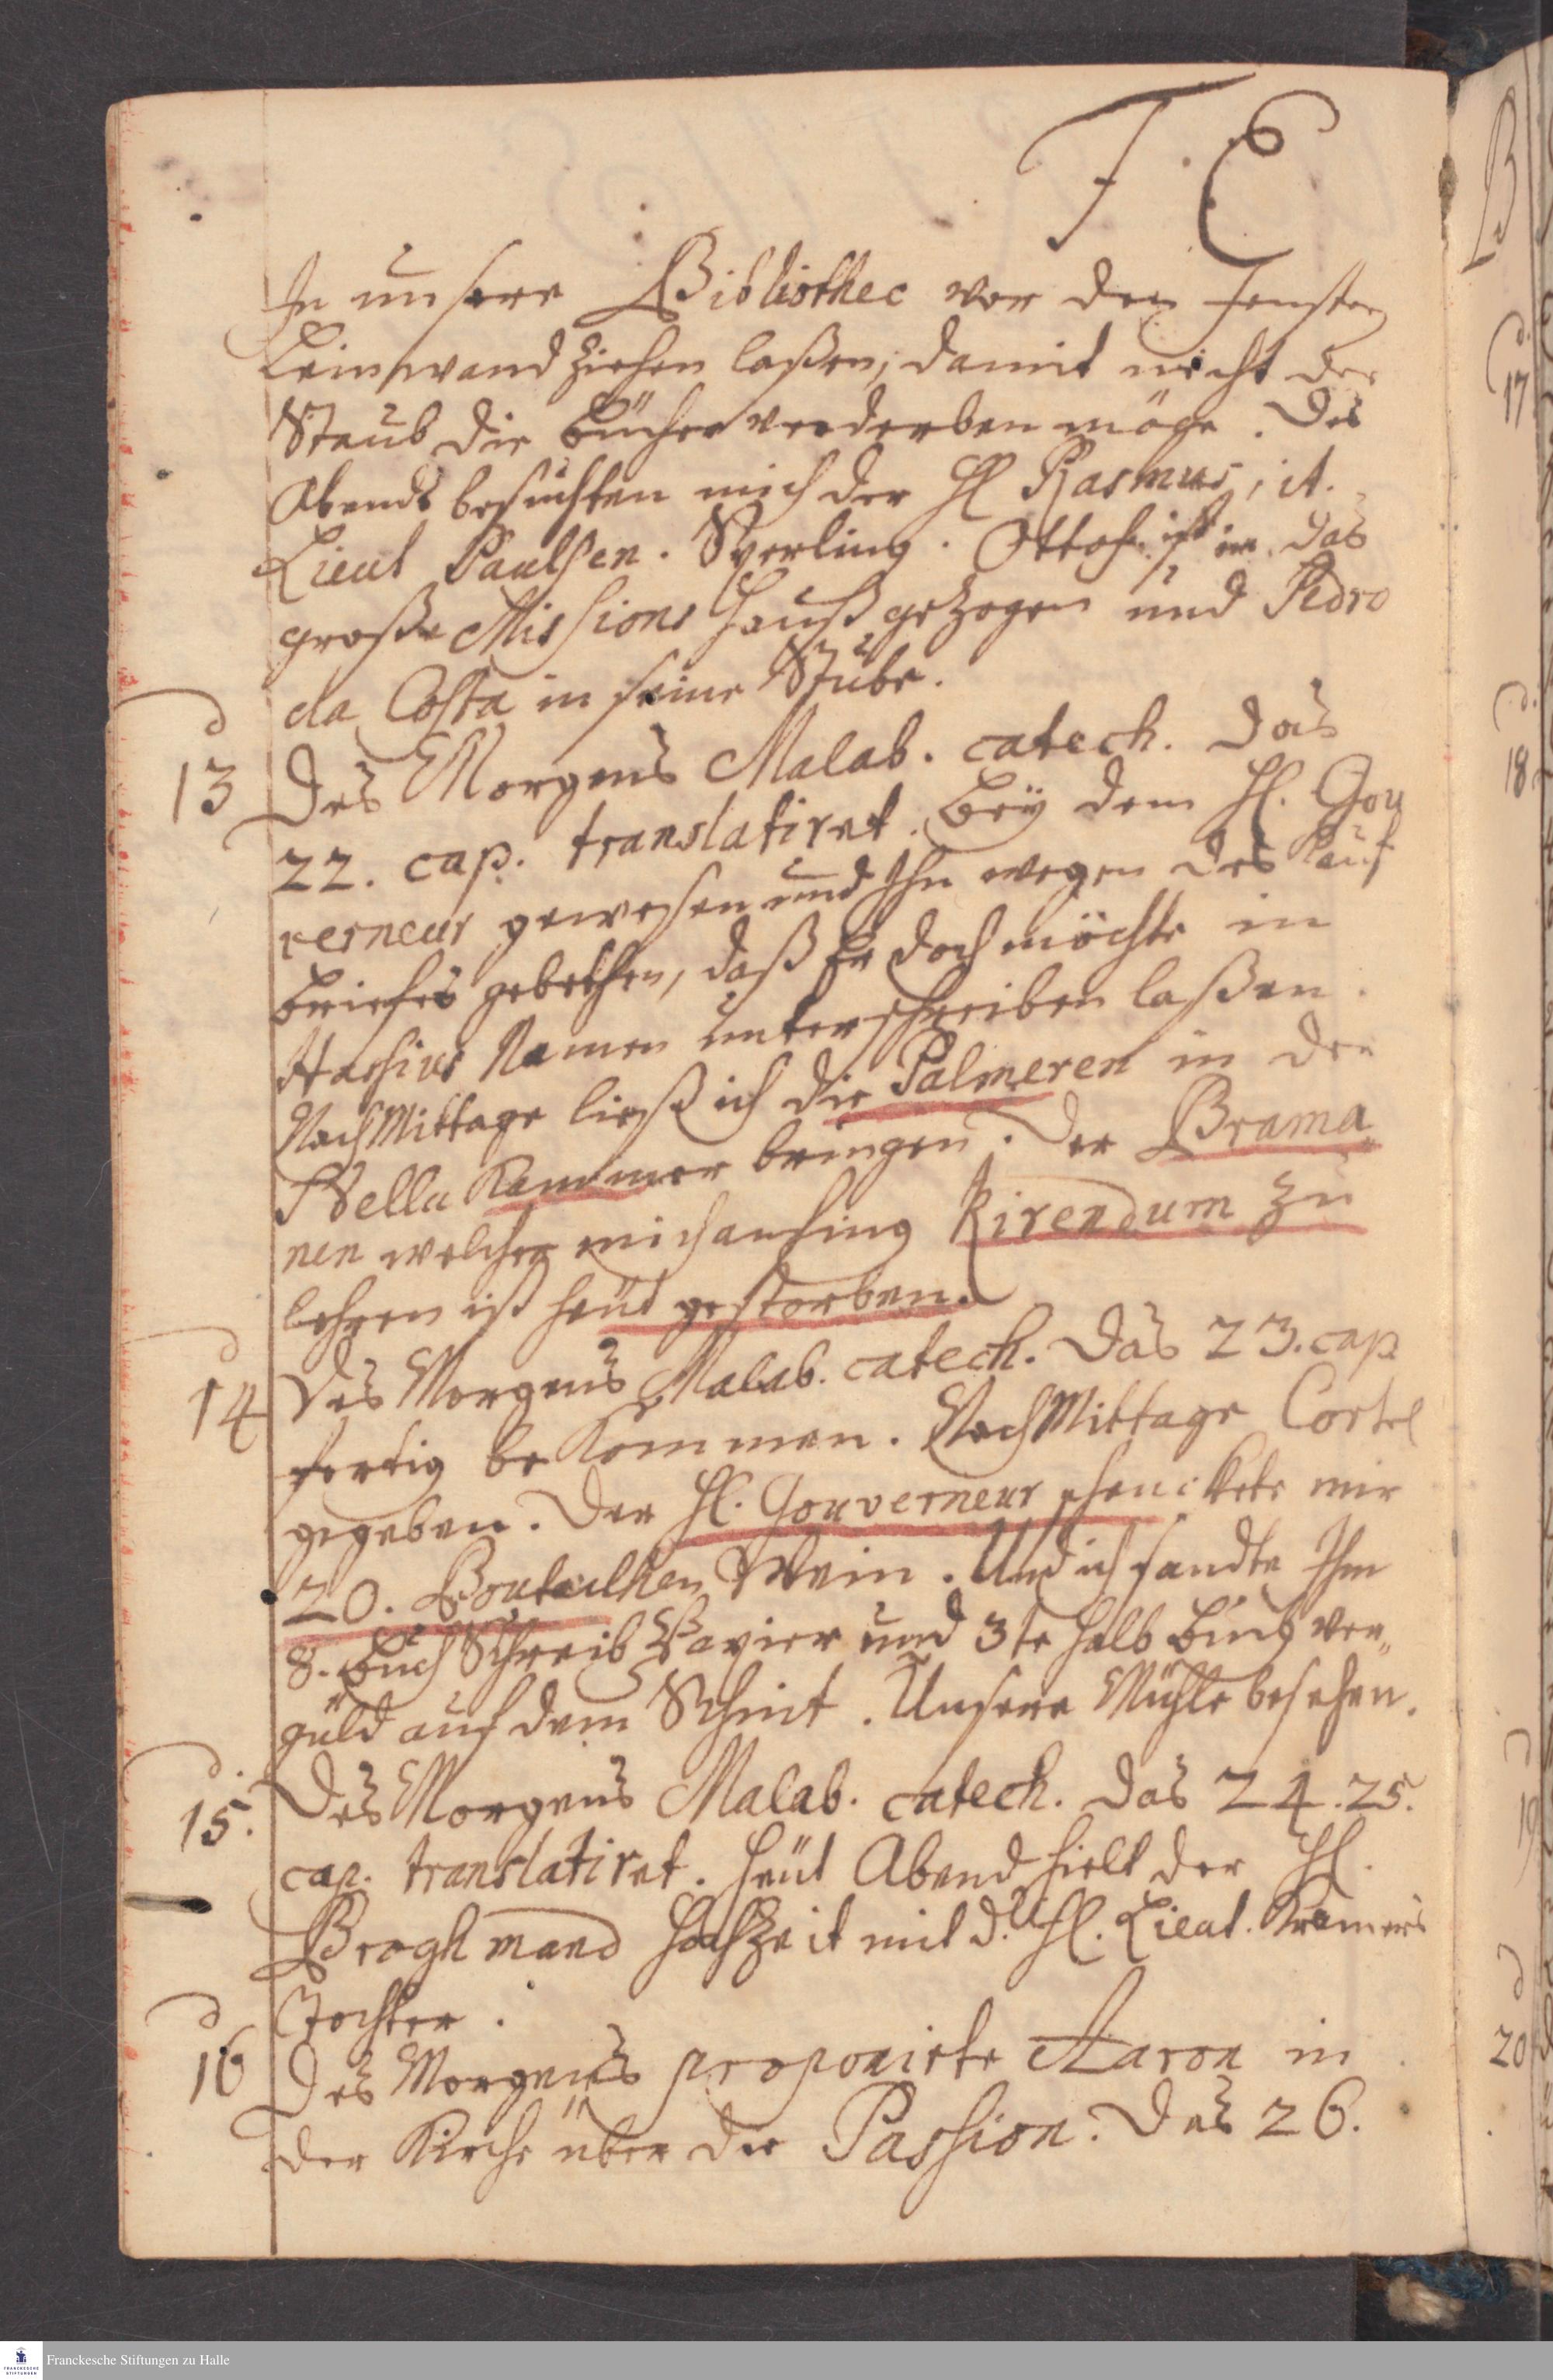 F E
In unsere Bibliothec vor den Fenster
Leinwand ziehen laßen, damit nicht der
Staub die Bücher verderben möge. Des
Abends besuchten mich der H. Rasmus, it.
Lieut Paulsen. Sperling. Ottoh. ist in das
große Missions Hauß gezogen und Pedro
da Costa in seine Stube.
d
13 Des Morgens Malab. catech. das
22. cap. translatiret. Bey dem H. Gou
verneur gewesen und Ihn wegen des Kauf
briefes gebethen, daß Er doch möchte in
Hassius Namen unterschreiben laßen.
NachMittage ließ ich die Palmeren in der
Nella Kammer bringen. Der Brama
nen welcher mich anfing Kirendum zu
lehren ist heut gestorben.
d
14 Des Morgens Malab. catech. Das 23. cap
fertig bekommen. NachMittage Cortel
gegeben. Der H. Gouverneur schenckete mir
20. Bouteilhen Wein. Und ich sandte Ihm
8. Buch Schreib Papier und 3te halb Buch ver
guld auf dem Schnit. Unsere Mühle besehen.
d.
15. Des Morgens Malab. catech. das 24. 25.
cap. translatiret. Heut Abend hielt der H.
Broghmand Hochzeit mit d. H. Lieut. Kramers
Tochter.
d
16 Des Morgens proponirte Aaron in
der Kirche über die Passion. Das 26.
B
d.
17
d.
18
d
19
d
20
Franckesche Stiftungen zu Halle